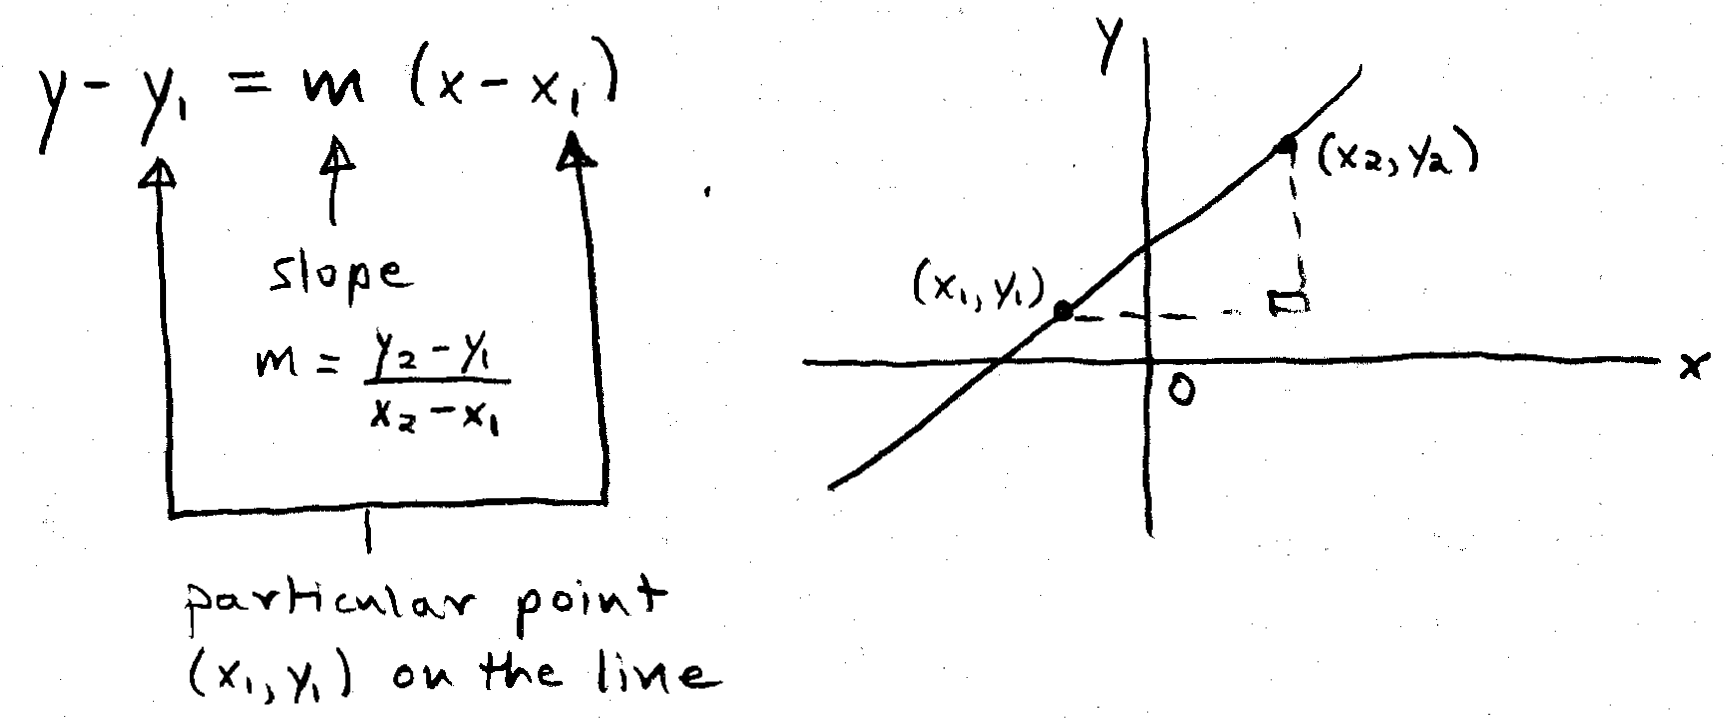 y - y₁ = m (x - x₁)
slope
m = y₂ - y₁
x₂ - x₁
particular point
(x₁, y₁) on the line
y
(x₂, y₂)
(x₁, y₁)
x
0